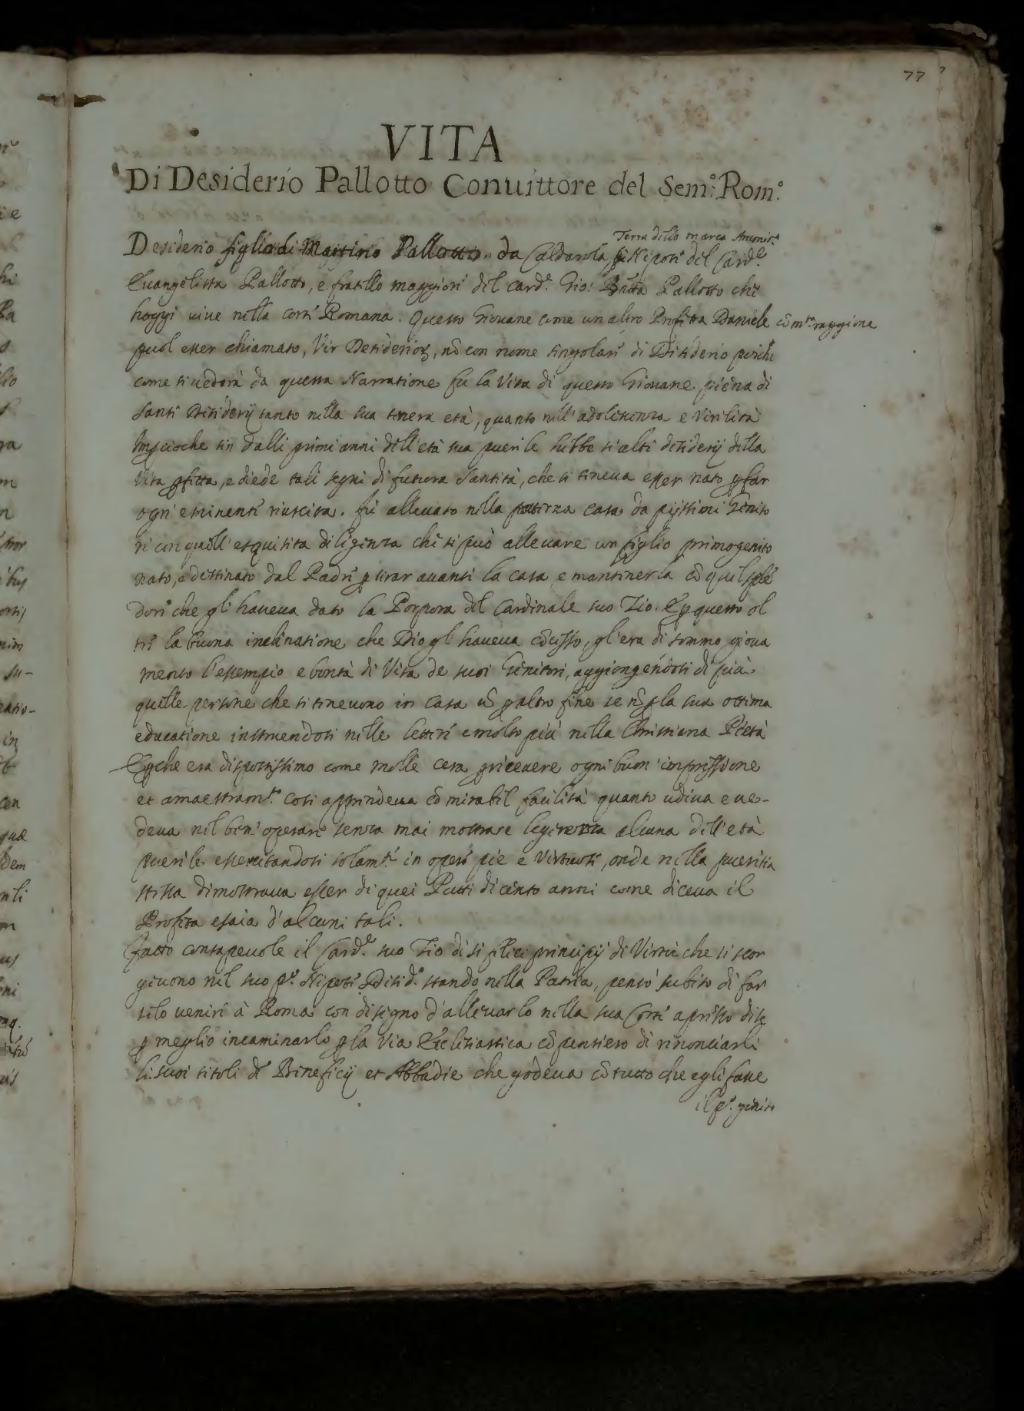 77
VITA
Di Desiderio Pallotto Conuittore del Sem:º Rom:º
Terra della marca Anconit.ª
Desiderio figlio di Martino Pallotto da Caldarola fu Nipote del Card.le
Euangelista Pallotto, e fratello maggiore del Card.e Gio: Batta Pallotto che
hoggi uiue nella corte Romana. Questo Giouane come un altro Profeta Daniele cõ m.ta raggione
puol esser chiamato, Vir Desideriorũ, nõ con nome singolare di Desiderio perche
come si uederà da questa Narratione fu la Vita di questo Giouane piena di
Santi Desiderij tanto nella sua tenera età, quanto nell'adolescenza e Virilità
Impcioche sin dalli primi anni dell'età sua puerile hebbe si alti desiderij della
Vita pfetta, e diede tali segni di futura Santità, che si teneua esser nato p far
ogn'eminente riuscita. fù alleuato nella paterna casa da pijssimi Genito
ri con quell'esquisita diligenza che si può alleuare un figlio primogenito
nato, e destinato dal Padre p tirar auanti la casa e mantinerla cõ quel splẽ
dore che gl'haueua dato la Porpora del Cardinale suo Zio. E p questo ol
tre la buona inclinatione che Dio gl'haueua cõcesso, gl'era di sommo gioua
mento l'essempio e bontà di Vita de suoi Genitori, aggiongendosi di più
quelle persone che si teneuono in casa nõ p altro fine se nõ p la sua ottima
educatione instruendosi nelle lettere e molto più nella Christiana Pietà
E pche era dispostissimo come molle cera p riceuere ogni buon'impressione
et amaestram.to cosi apprendeua cõ mirabil facilità quanto udiua e ue-
deua nel ben'operare senza mai mostrare leggerezza alcuna dell'età
puerile essercitandosi solam.te in opere pie e Virtuose, onde nella pueritia
stessa dimostraua esser di quei Putti di cento anni come diceua il
Profeta esaia d'alcuni tali.
Fatto consapeuole il Card.le suo Zio di si felici principij di Virtù che si scor
geuono nel suo Nipote Desid.º stando nella Patria, pensò subito di far
selo uenire à Roma con disegno d'alleuarlo nella sua Corte apresso di se
p meglio incaminarlo p la Via Ecclesiastica cõ pensiero di rinonciarli
li suoi titoli di Beneficij et Abbadie che godeua cõ tutto che egli fosse
il p.º genito